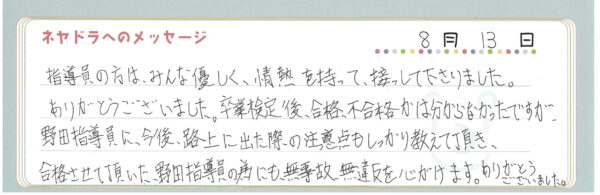 ネヤドラへのメッセージ
8月13日
指導員の方は、みんな優しく、情熱を持って、接っして下さりました。
ありがとうございました。卒業検定後、合格、不合格かは分からなかったですが、
野田指導員に、今後、路上に出た際の注意点もしっかり教えて頂き、
合格させて頂いた、野田指導員の為にも、無事故、無違反を心がけます。ありがとうございました。